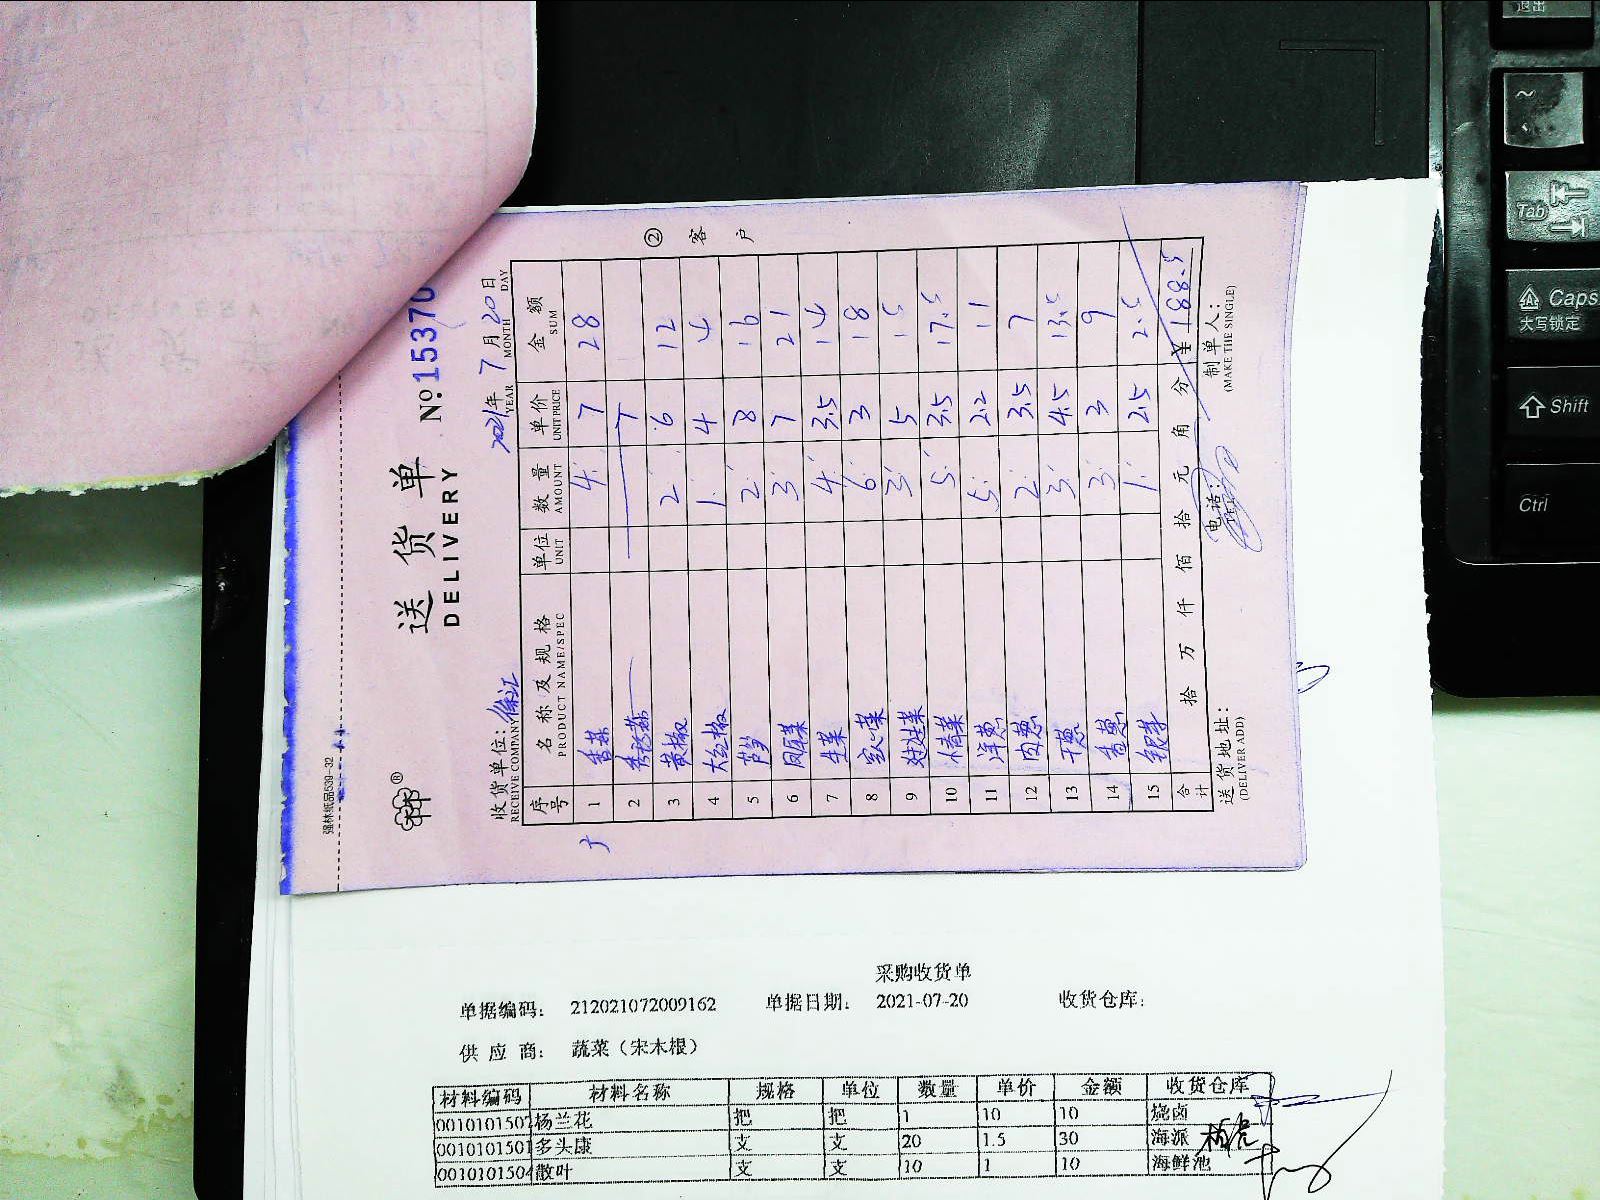 强林纸品539-32
送货单
DELIVERY
№:15370
2021年 7月20日
YEAR MONTH DAY
收货单位:
RECEIVE COMPANY
② 客 户
序号 名称及规格 单位 数量 单价 金额
PRODUCT NAME/SPEC UNIT AMOUNT UNIT PRICE SUM
1 香菜 4 7 28
2 7
3 黄椒 2 6 12
4 大红椒 1 4 4
5 芦笋 2 8 16
6 3 7 21
7 生菜 4 3.5 14
8 空心菜 6 3 18
9 3 5 15
10 5 3.5 17.5
11 洋葱 5 2.2 11
12 肉葱 2 3.5 7
13 干葱 3 4.5 13.5
14 香葱 3 3 9
15 银芽 1 2.5 2.5
合计 拾 万 仟 佰 拾 元 角 分 ¥188.5
送货地址:
(DELIVER ADD)
电话:
制单人:
(MAKE THE SINGLE)
采购收货单
单据编码: 212021072009162 单据日期: 2021-07-20 收货仓库:
供应商: 蔬菜(宋木根)
材料编码 材料名称 规格 单位 数量 单价 金额 收货仓库
0010101507 杨兰花 把 把 1 10 10 烧卤
0010101501 多头康 支 支 20 1.5 30 海派
0010101504 散叶 支 支 10 1 10 海鲜池
退出
~
Tab
Caps
大写锁定
Shift
Ctrl